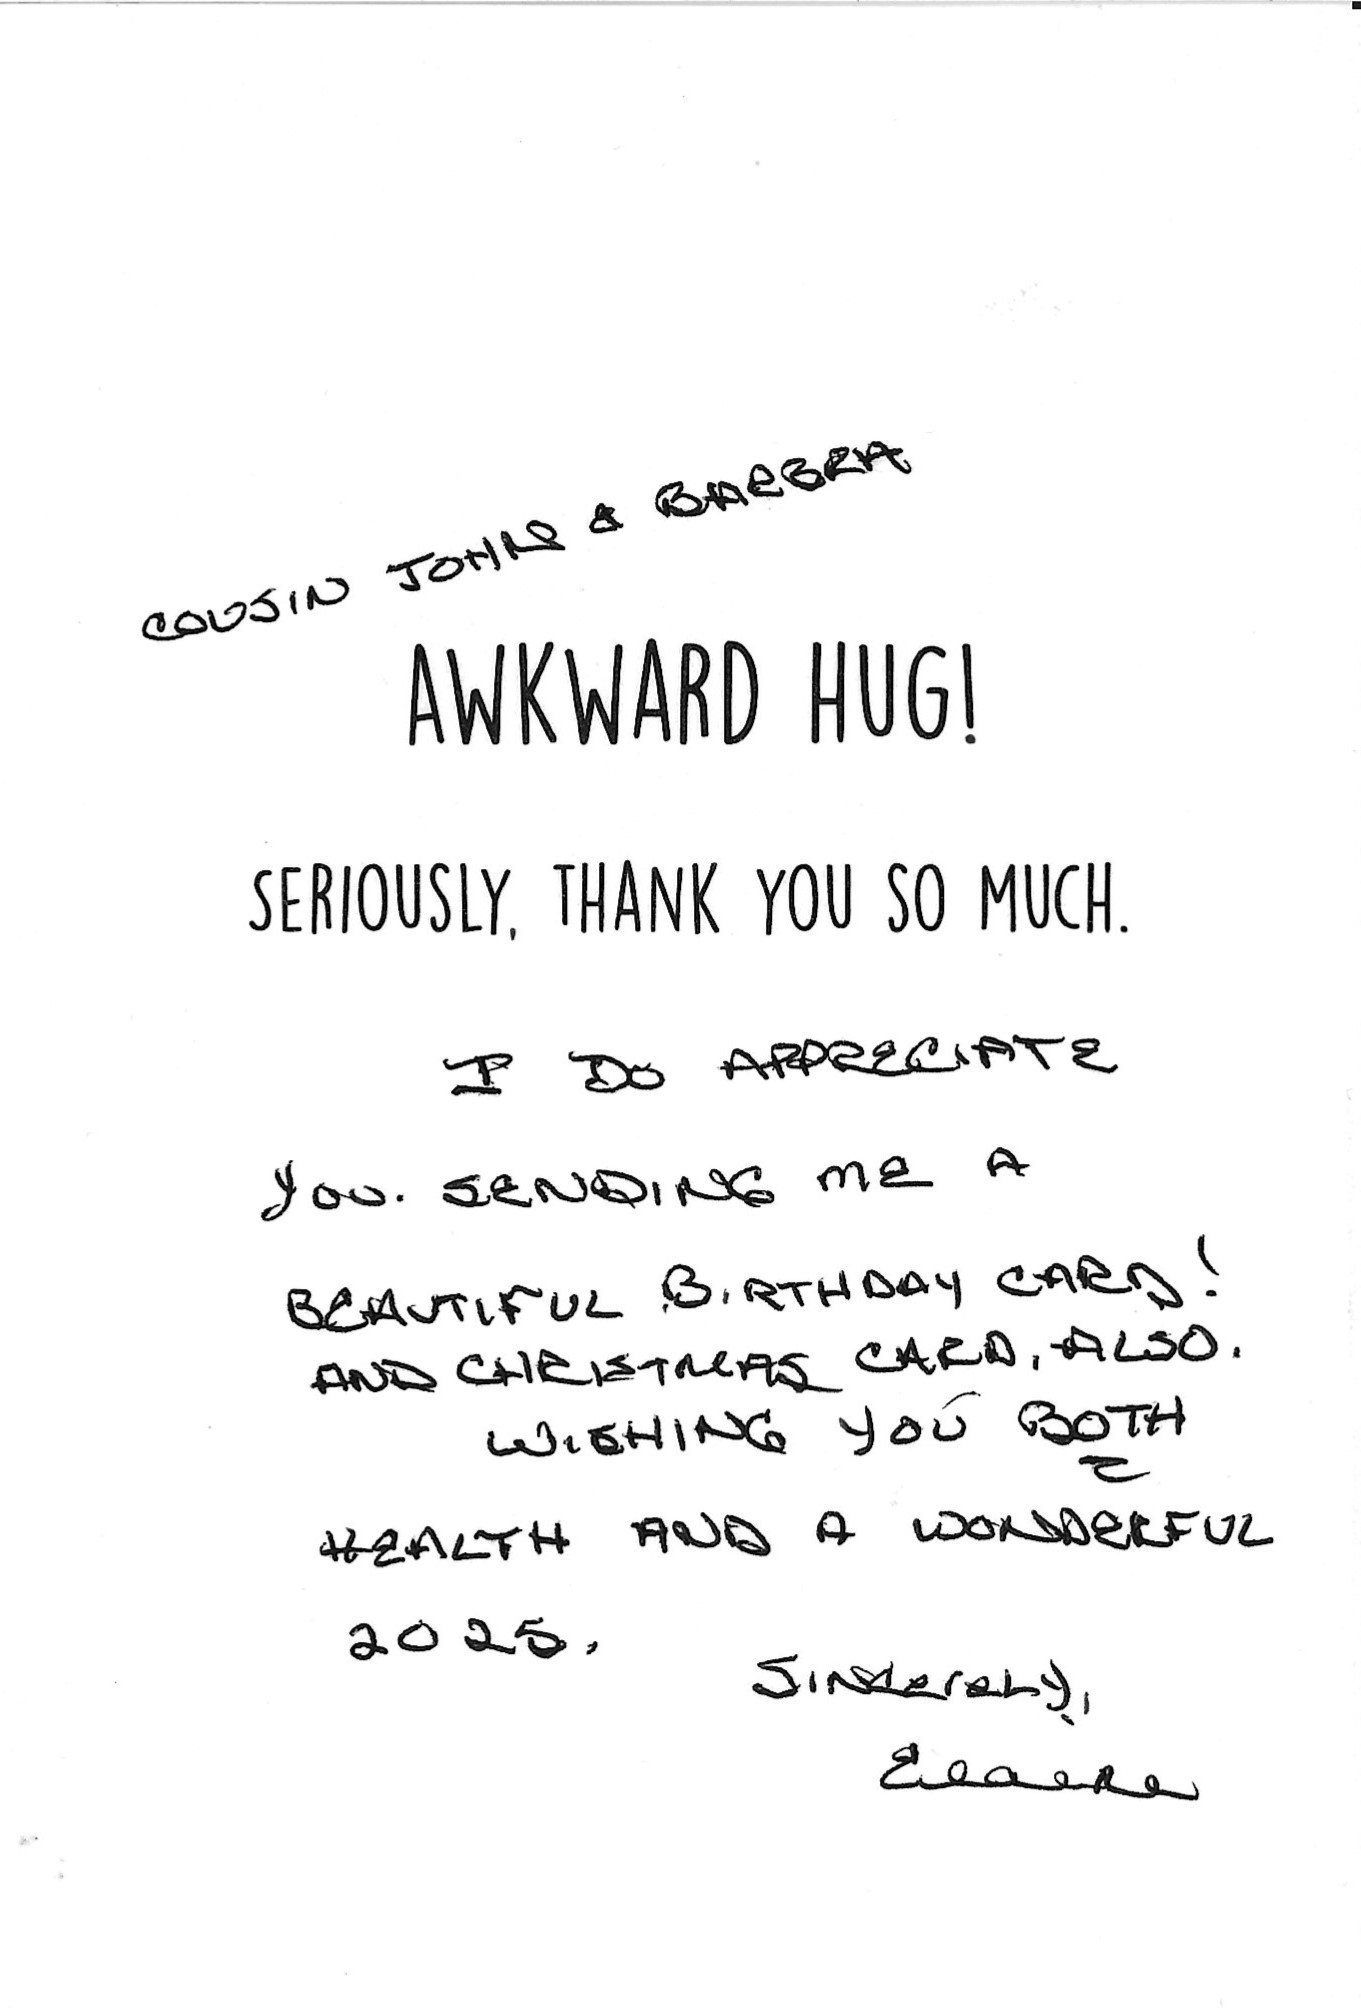 COUSIN JOHN & BARBRA
AWKWARD HUG!
SERIOUSLY, THANK YOU SO MUCH.
I DO APPRECIATE
YOU. SENDING ME A
BEAUTIFUL BIRTHDAY CARD!
AND CHRISTMAS CARD, ALSO.
WISHING YOU BOTH
HEALTH AND A WONDERFUL
2025.
Sincerely,
Elaine